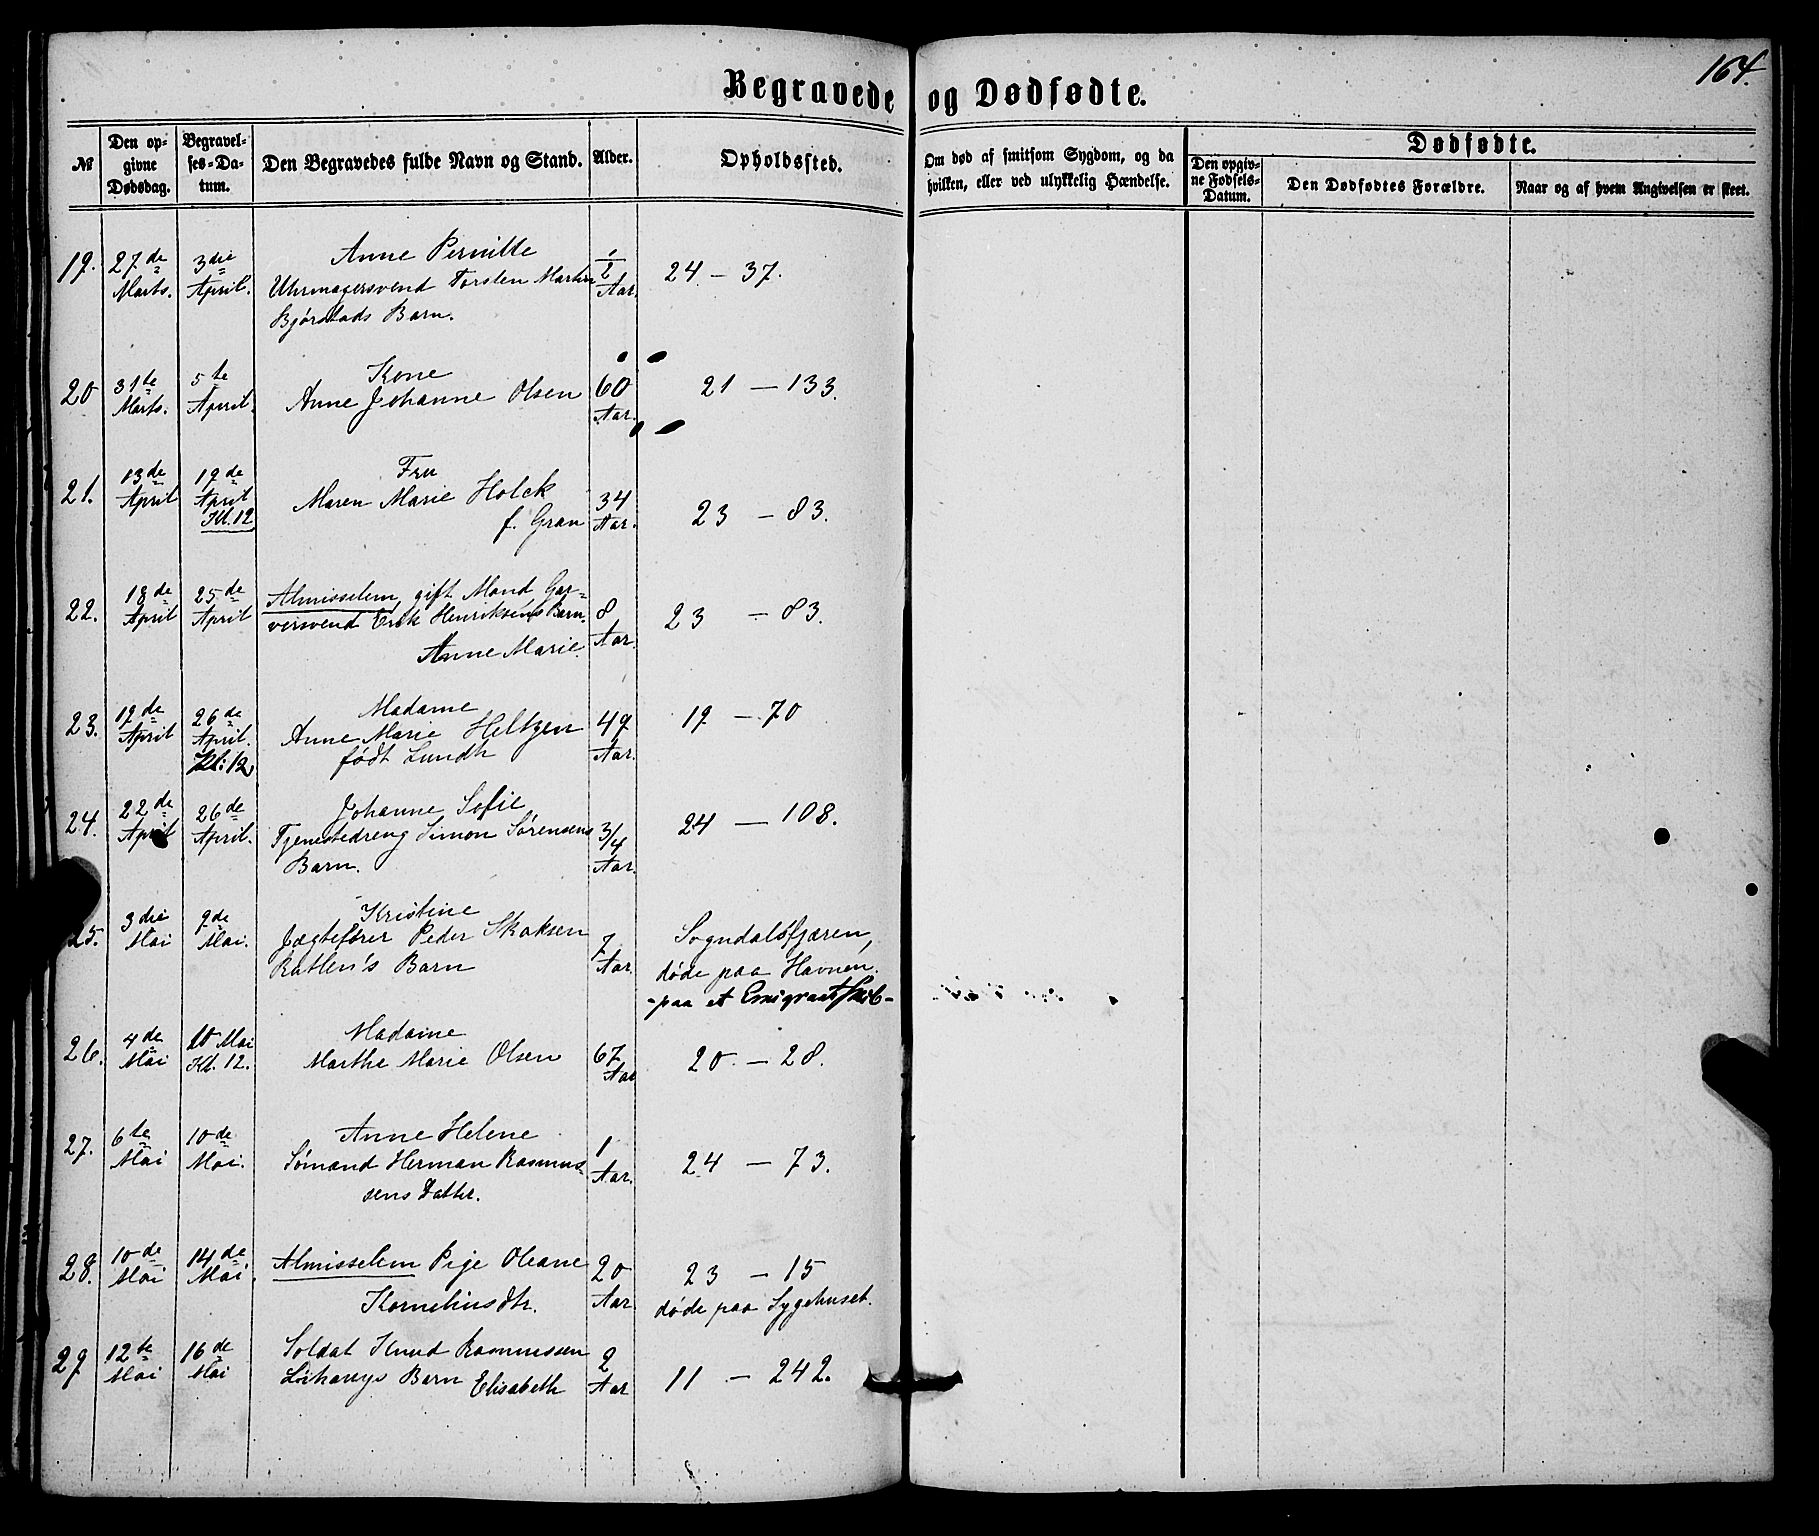 164.
Begravede og Dødfødte.
№
Den op-
givne
Dødsdag.
Begravel-
ses-Da-
tum.
Den Begravedes fulde Navn og Stand.
Alder.
Opholdssted.
Om død af smitsom Sygdom, og da
hvilken, eller ved ulykkelig Hændelse.
Dødfødte.
Den opgiv-
ne Fødsels-
Datum.
Den Dødfødtes Forældre.
Naar og af hvem Angivelsen er skeet.
19. 27de Marts. 3die April. Anne Pernille ½ Aar. 24 - 37.
Uhrmagersvend Torsten Martin
Bjørstads Barn.
20 31te Marts. 5te April. Kone 60 Aar. 21 - 133.
Anne Johanne Olsen
21. 13de April 19de April Kl. 12 Fru 34 Aar. 23 - 83.
Maren Marie Holck
f. Gran
22. 18de April 25de April Almisselem, gift Mand, Gar- 8 Aar. 23 - 83.
versvend Erik Henriksens Barn
Anne Marie.
23. 19de April 26de April. Kl. 12 Madame 49 Aar. 19 - 70
Anne Marie Heltzen
født Lundh
24. 22de April 26de April. Johanne Sofie 3/4 Aar. 24 - 108.
Tjenestedreng Simon Sørensens
Barn.
25. 3die Mai 9de Mai. Kristine 7 Aar. Sogndalsfjæren,
Jægtefører Peder Skaksen døde paa Havnen.
Barn -paa et Emigrantskib-
26. 4de Mai 10 Mai Kl. 12. Madame 67 Aar 20 - 28.
Marthe Marie Olsen
27. 6te Mai 10de Mai. Anne Helene 1 Aar. 24 - 73.
Sømand Herman Rasmus-
sens Datter.
28. 10de Mai 14de Mai. Almisselem Pige Oleane 20 Aar. 23 - 15
Korneliusdtr. døde paa Sygehuset.
29 12te Mai 16de Mai Soldat Knud Rasmussen 2 Aar 11 - 242.
Barn Elisabeth